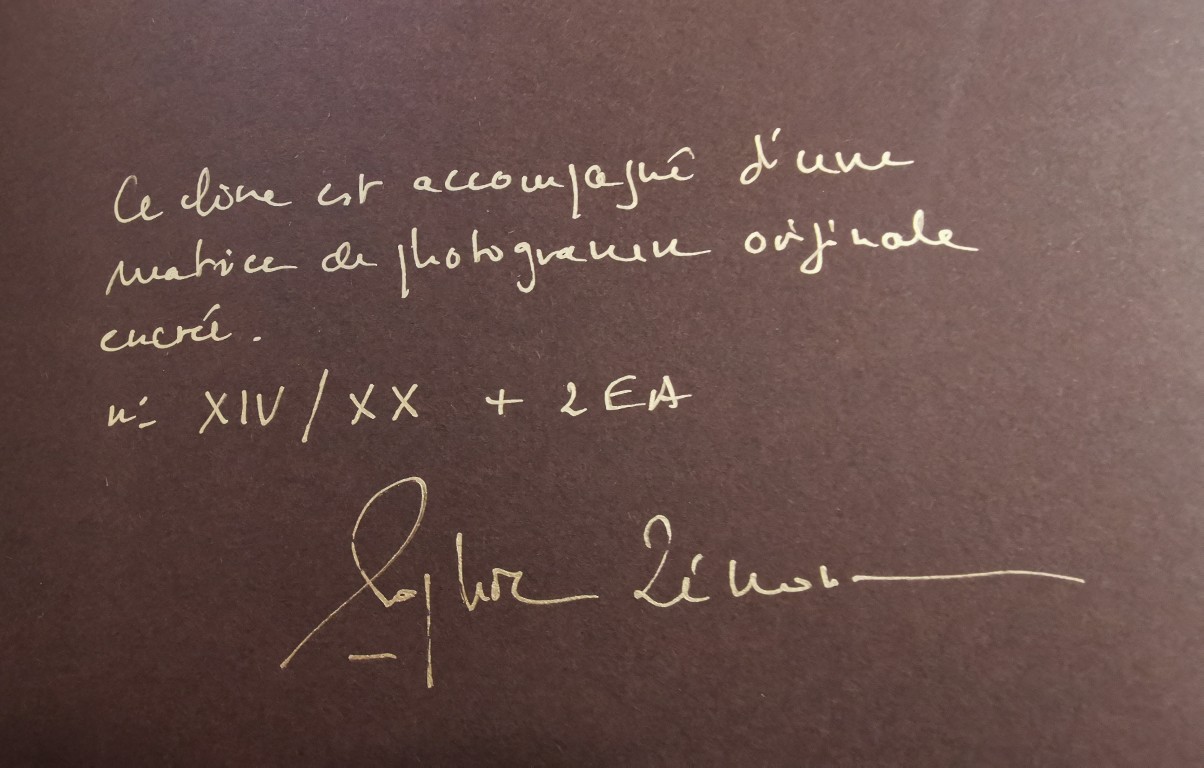 Ce livre est accompagné d'une
matrice de photogravure originale
encrée.
n° XIV/XX + 2 EA
Sophie Zénon